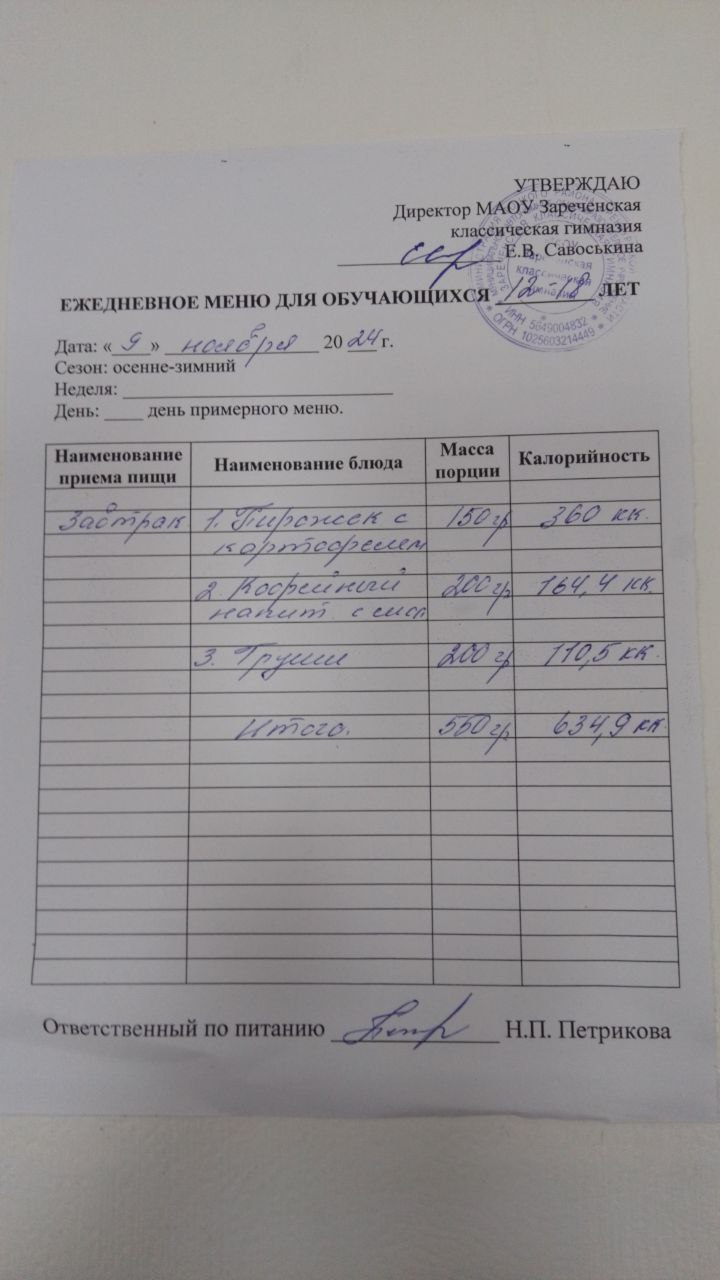 УТВЕРЖДАЮ
Директор МАОУ Зареченская
классическая гимназия
Е.В. Савоськина
ЕЖЕДНЕВНОЕ МЕНЮ ДЛЯ ОБУЧАЮЩИХСЯ 12-18 ЛЕТ
ИНН 5649004832
ОГРН 1025603214449
Дата: «9» ноября 2024 г.
Сезон: осенне-зимний
Неделя:
День: ____ день примерного меню.
Наименование приема пищи Наименование блюда Масса порции Калорийность
Завтрак 1. Пирожок с 150 гр 360 кк.
картофелем
2. Кофейный 200 гр 164,4 кк.
напит. с мол
3. Груши 200 гр 110,5 кк.
Итого. 550 гр 634,9 кк.
Ответственный по питанию Н.П. Петрикова